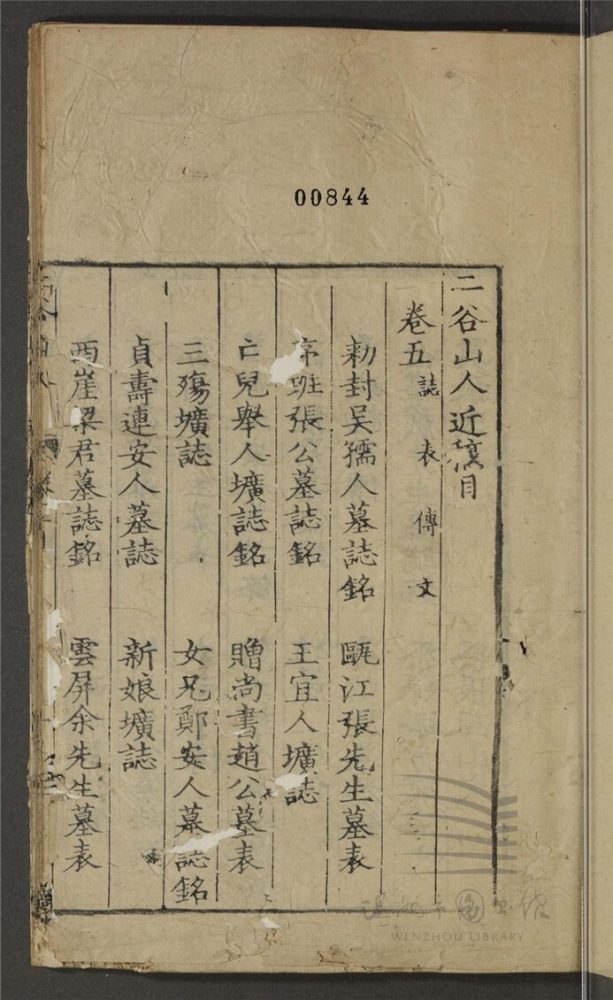 00844
二谷山人近稿目
卷五 誌 表 傳 文
勑封吴孺人墓誌銘 甌江張先生墓表
班張公墓誌銘 王宜人壙誌
亡兒舉人壙誌銘 贈尚書趙公墓表
三殤壙誌 女兄鄭安人墓誌銘
貞壽連安人墓誌 新娘壙誌
西崖梁君墓誌銘 雲屏余先生墓表
温州市圖書館
WENZHOU LIBRARY